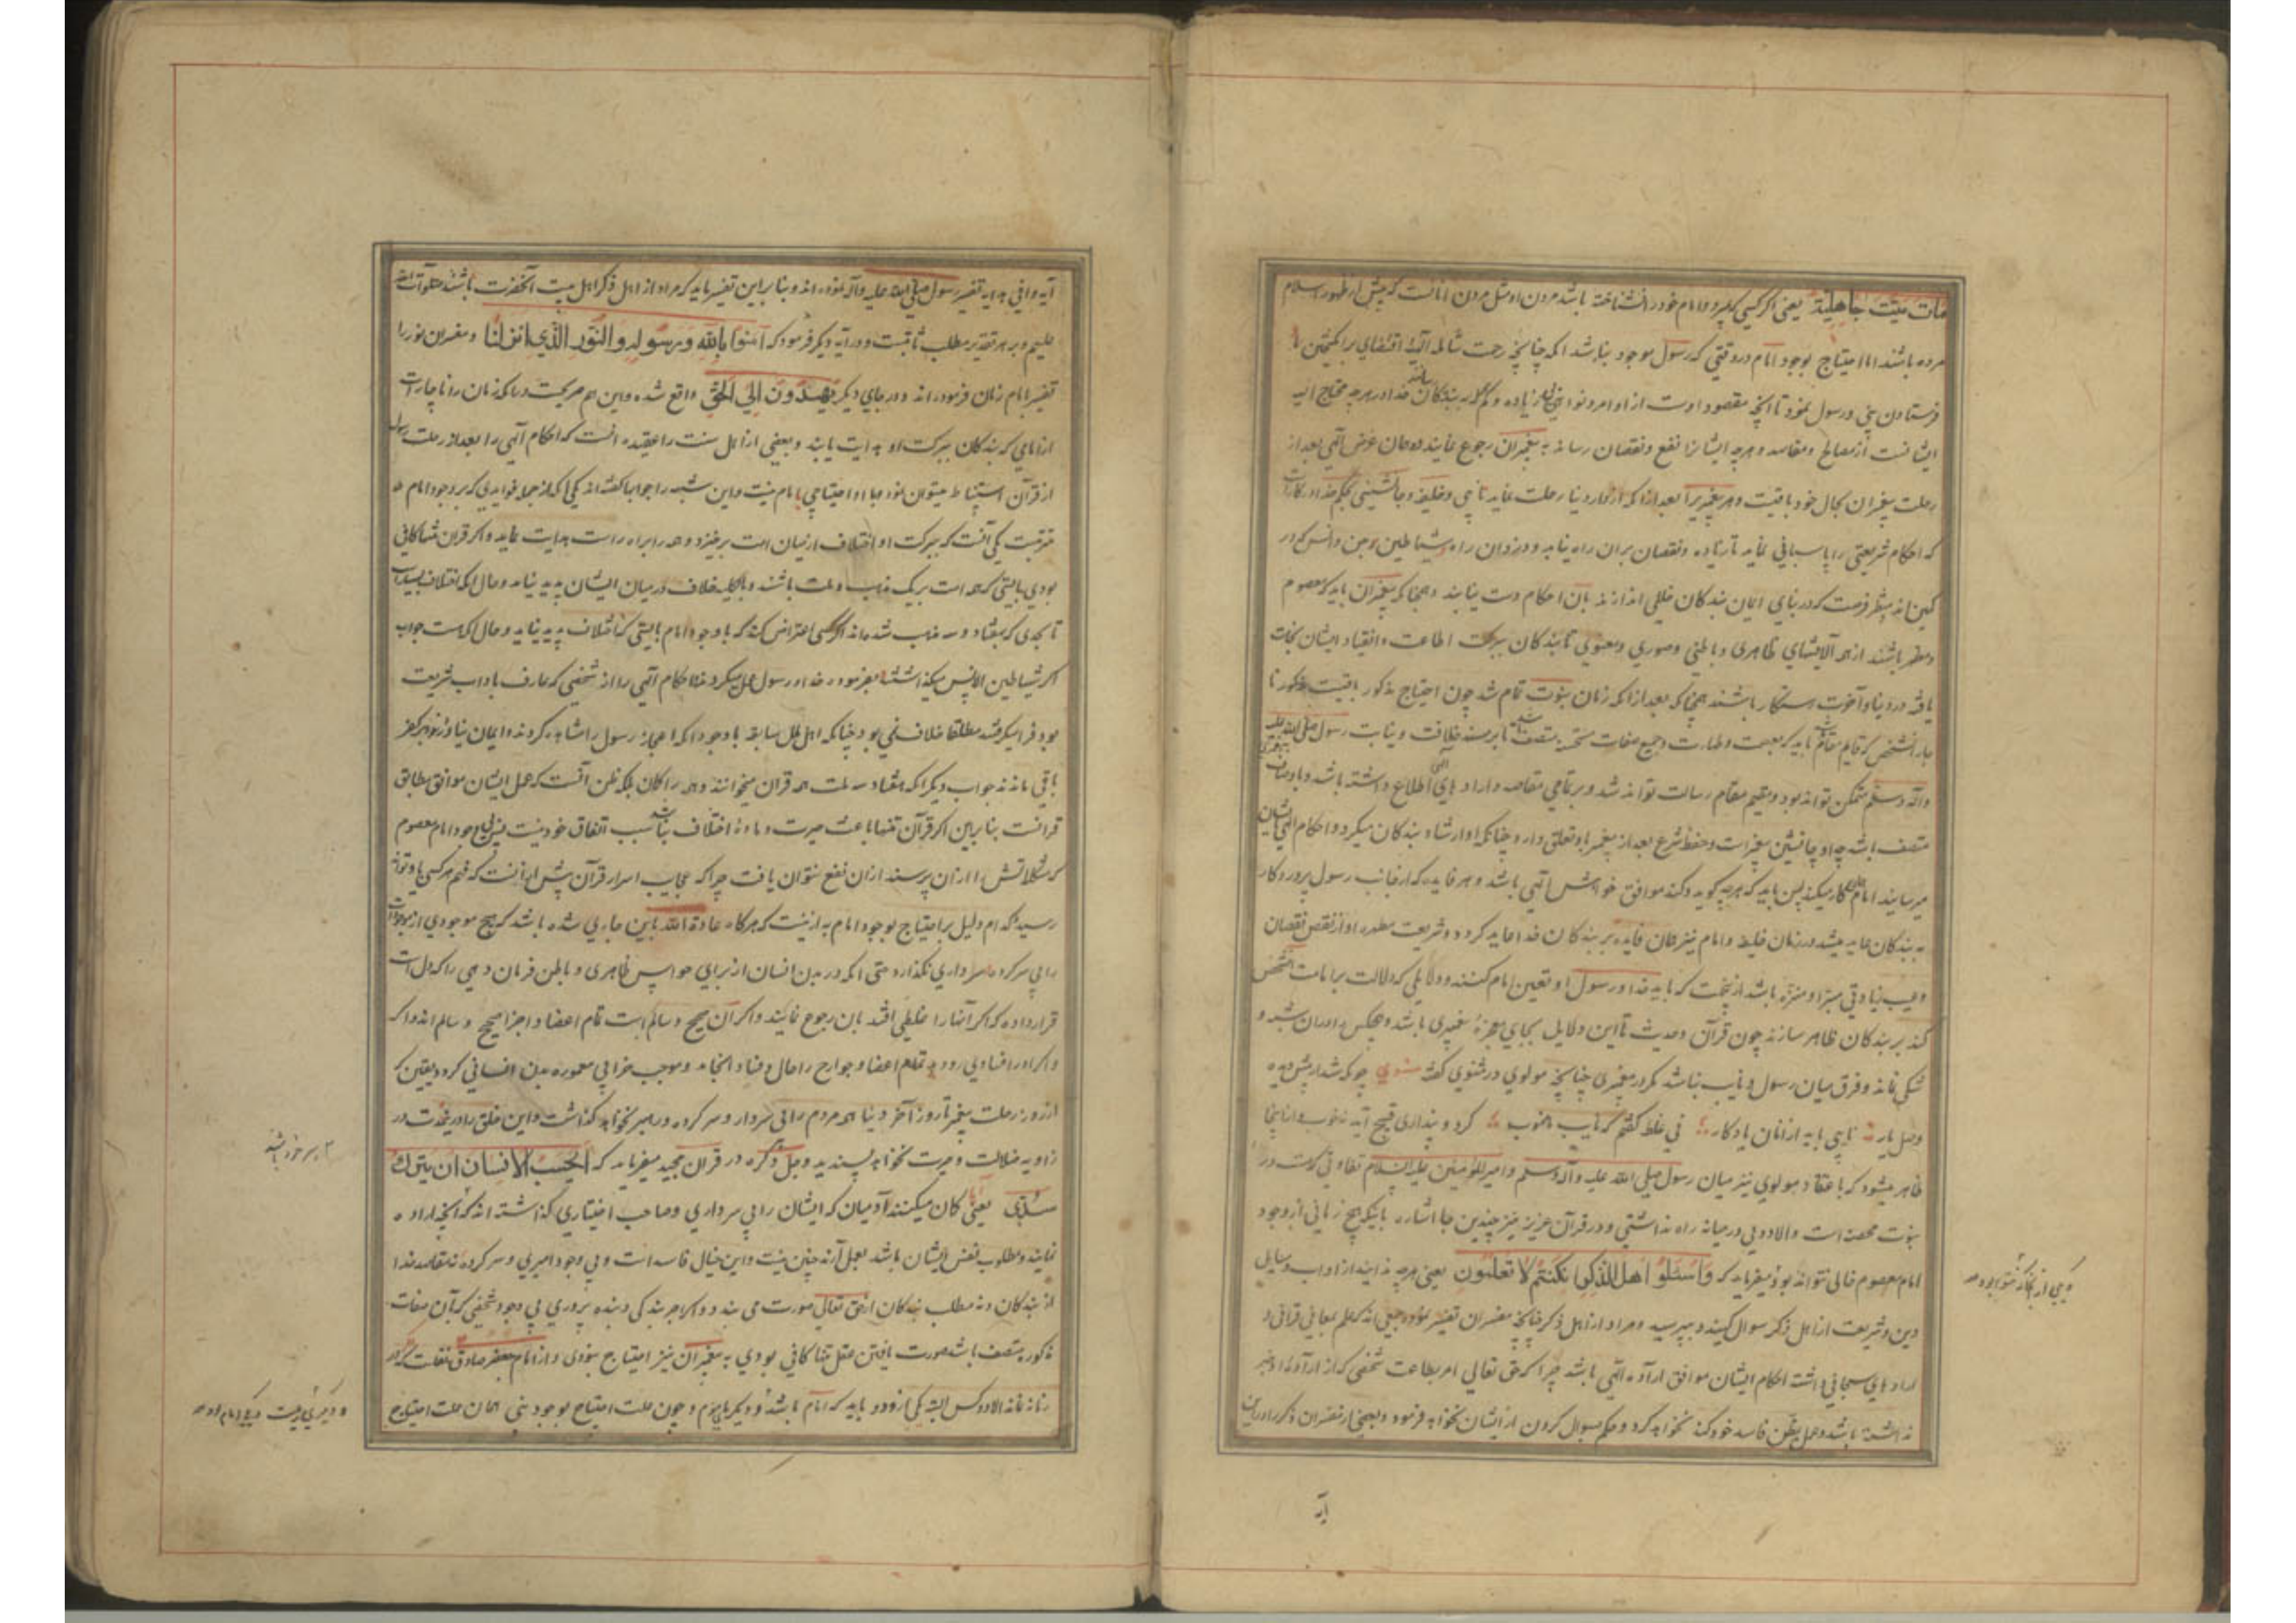 مات میتت جاهلیة یعنی اکر کسی بمیرد و امام خود را نشناخته باشد مردن او مثل مردن آنانست که پیش از ظهور اسلام
مرده باشند اما احتیاج بوجود امام در وقتی که رسول موجود نباشد آنکه چنانچه رحمت شامله الهیه اقتضای برانکیختن
فرستادن نبی و رسول نمود تا آنچه مقصود اوست از اوامر و نواهی زیاده و کم به بندکان خدا در هر چه محتاج الیه
ایشانست از مصالح و مفاسد و هر چه ایشانرا نفع و نقصان رساند به پیغمبران رجوع نمایند همان غرض الهی بعد از
رحلت پیغمبران بحال خود باقیست و هر پیغمبریرا بعد از آنکه از دار دنیا رحلت نماید نایبی و خلیفه و جانشینی بحکم خدا در کارست
که احکام شریعتی را پاسبانی نماید تا زیاده و نقصان بران راه نیابد و دزدان راه و شیاطین جن و انس که در
کمین اند و منتظر فرصت که در بنای ایمان بندکان خللی اندازند بان احکام دست نیابند و همچنانکه پیغمبران باید که معصوم
و مطهر باشند از همه آلایشهای ظاهری و باطنی و صوری و معنوی تا بندکان ببرکت اطاعت و انقیاد ایشان نجات
یافته در دنیا و آخرت رستکار باشند همچنانکه بعد از آنکه زمان نبوت تمام شد چون احتیاج مذکور باقیست
جار آنشخص که قایم مقام باشد باید که بعصمت و طهارت و جمیع صفات متصف باشد تا بر مسند خلافت و نیابت رسول صلی الله علیه
وآله وسلم متمکن تواند بود و مقیم مقام رسالت تواند شد و بر تمامی مقاصد و ارادهای الهی اطلاع داشته باشد و باوصاف
متصف باشد چه او جانشین پیغمبرست و حفظ شرع بعد از پیغمبر باو تعلق دارد و چنانکه او ارشاد بندکان میکرد و احکام الهی بایشان
میرسانید امام همان کار میکند پس باید که هرچه کوید و کند موافق خواهش الهی باشد و هر فایده که از جانب رسول پروردکار
به بندکان عاید میشد در زمان خلیفه و امام نیز همان فایده بر بندکان خدا عاید کردد و شریعت مطهره او از نقص نقصان
و عیب زیادتی مبرا و منزه باشد ازینجهت که باید خدا و رسول او تعیین امام کنند و دلایلی که دلالت بر امامت آنشخص
کند بر بندکان ظاهر سازند چون قرآن و حدیث تا این دلایل بجای معجزه پیغمبری باشد و هیچکس را در ان شبهه و
شکی نماند و فرق میان رسول و نایب نباشد مکر در پیغمبری چنانچه مولوی در مثنوی کفته مثنوی چونکه شد از پیش دیده
وصل یار نایبی باید ازومان یادکار نی غلط کفتم که نایب با منوب کر دو پنداری قبیح آید نه خوب و ازینجا
ظاهر میشود که باعتقاد مولوی نیز میان رسول صلی الله علیه وآله وسلم و امیرالمؤمنین علیه السلام تفاوتی که هست در
نبوت محضه است والا دویی در میانه راه نداشتی و در قرآن عزیز نیز چندین جا اشاره باینکه هیچ زمانی از وجود
امام معصوم خالی نتواند بود میفرماید که واسئلوا اهل الذکر ان کنتم لا تعلمون یعنی هرچه ندانید از ابواب مسایل
دین و شریعت از اهل ذکر سوال کنید و بپرسید و مراد از اهل ذکر چنانچه مفسران تفسیر نموده جمعی اند که علم بمعانی قرآنی و
ارادهای سبحانی داشته احکام ایشان موافق اراده الهی باشد چرا که حق تعالی امر بطاعت شخصی که از اراده او خبر
نداشته باشد و عمل بظن فاسد خود کند نخواهد کرد و حکم بسوال کردن از ایشان نخواهد فرمود و بعضی از مفسران ذکر را درین
آیه
آیه وافی هدایه تفسیر رسول صلی الله علیه وآله نموده اند و بنا براین تفسیر باید که مراد از اهل ذکر اهل بیت آنحضرت باشند صلوات الله
علیهم و بر هر تقدیر مطلب ثابتست و در آیه دیکر فرموده که آمنوا بالله ورسوله والنور الذی انزلنا و مفسران نور را
تفسیر بامام زمان فرموده اند و در جای دیکر یهدون الی الحق واقع شده و این هم صریحست در آنکه زمان را ناچارست
از امامی که بندکان ببرکت او هدایت یابند و بعضی از اهل سنت را عقیده آنست که احکام الهی را بعد از رحلت رسول
از قرآن استنباط میتوان نمود و ما را احتیاجی بامام نیست و این شبهه را جوابها کفته اند یکی آنکه از جمله فوایدی که بر وجود امام
مترتبست یکی آنست که ببرکت او اختلاف از میان امت برخیزد و همه را براه راست هدایت نماید و اکر قرآن تنها کافی
بودی بایستی که همه امت بر یک مذهب و ملت باشند و بالکلیه خلاف در میان ایشان پدید نیاید و حال آنکه اختلاف بسیارست
تا بحدی که بهفتاد و سه مذهب شده اند اکر کسی اعتراض کند که با وجود امام بایستی که اختلاف پدید نیاید و حال آنکه هست جواب
اکر شیاطین الانس میکذاشتند و بفرموده خدا و رسول عمل میکردند و احکام الهی را از شخصی که عارف باداب شریعت
بود فرا میکرفتند مطلقا خلاف نمی بود چنانکه اهل ملل سابقه با وجود آنکه اعجاز رسول را مشاهده کردند و ایمان نیاوردند و بر کفر
باقی ماندند جواب دیکر آنکه هفتاد و سه ملت همه قرآن میخوانند و همه را کمان بلکه ظن آنست که عمل ایشان موافق و مطابق
قرآنست بنا براین اکر قرآن تنها باعث حیرت و ماده اختلاف نباشد سبب اتفاق خود نیست پس بی وجود امام معصوم
که مشکلاتش را از ان پرسند ازان نفع نتوان یافت چرا که عجایب اسرار قرآن بیش از آنست که فهم هر کسی باو تواند
رسید و کدام دلیل بر احتیاج بوجود امام به ازینست که هرکاه عادة الله باین جاری شده باشد که هیچ موجودی از موجودات
را بی سرکرده و سرداری نکذارد حتی آنکه در بدن انسان از برای حواس ظاهری و باطن فرمان دهی را که دل است
قرار داده که اکر آنها را غلطی افتد بان رجوع نمایند و اکر آن صحیح و سالم است تمام اعضا و اجزا صحیح و سالم اند و اکر
و اکر او را فسادی رو دهد تمام اعضا و جوارح را حال بفساد انجامد و موجب خرابی معموره بدن انسانی کردد یقین که
از روز رحلت پیغمبر تا روز آخر دنیا همه مردم را بی سردار و سرکرده و رهبر نخواهد کذاشت و این خلق را درینمدت در
زاویه ضلالت و حیرت نخواهد پسندید و جل ذکره در قرآن مجید میفرماید که ایحسب الانسان ان یترک
سدی یعنی آیا کمان میکنند آدمیان که ایشان را بی سرداری و صاحب اختیاری کذاشته اند که آنچه اراده
نمایند و مطلوب نفس ایشان باشد بعمل آرند چنین نیست و این خیال فاسد است و بی وجود امیری و سرکرده نه مقاصد خدا
از بندکان و نه مطلب بندکان از حق تعالی صورت می بندد و اکر اجر بندکی و بنده پروری بی وجود شخصی که بآن صفات
مذکوره متصف باشد صورت یافتی و عقل تنها کافی بودی به پیغمبران نیز احتیاج نبودی و از امام جعفر صادق نقلست که در
زمانه نماند الا دو کس البته یکی از دو باید که امام باشد و دیکر ماموم و چون علت احتیاج بوجود نبی همان علت احتیاج